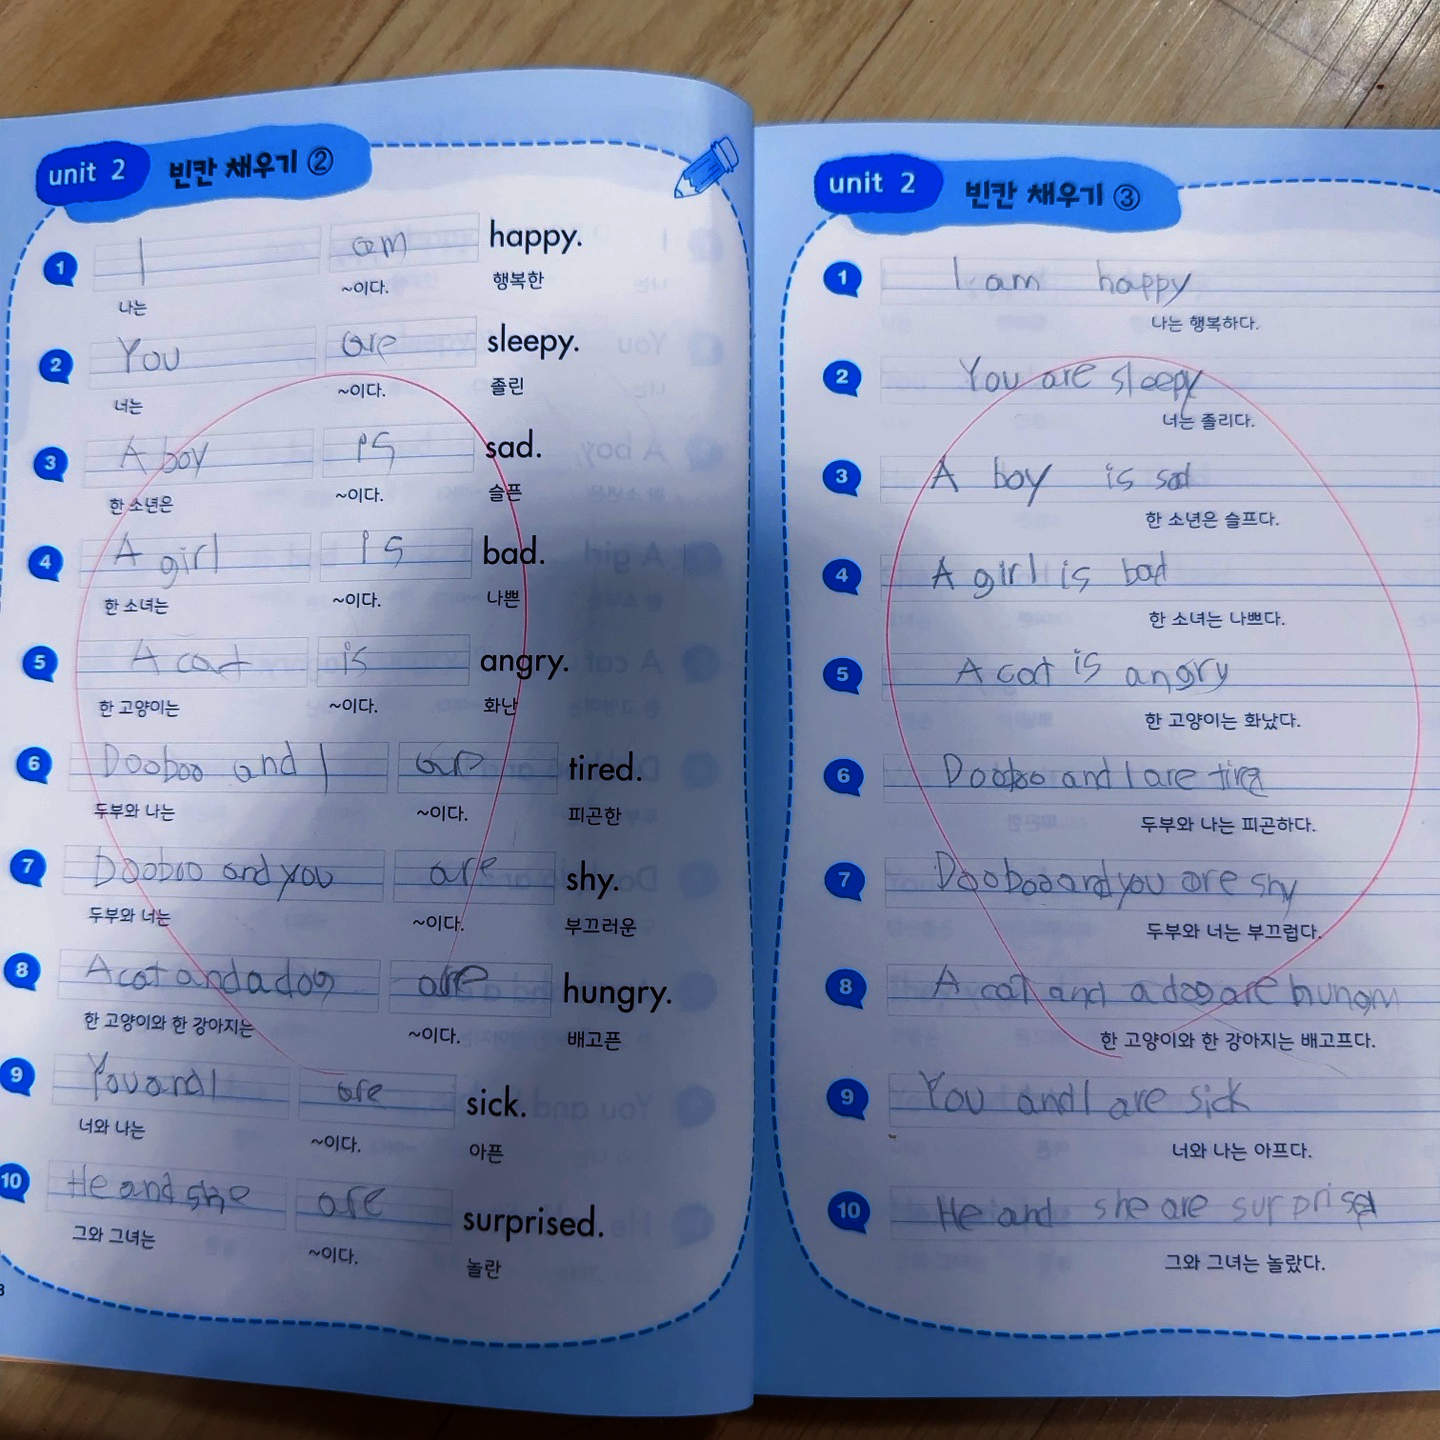 unit 2 빈칸 채우기 ②
1 I am happy.
나는 ~이다. 행복한
2 You are sleepy.
너는 ~이다. 졸린
3 A boy is sad.
한 소년은 ~이다. 슬픈
4 A girl is bad.
한 소녀는 ~이다. 나쁜
5 A cat is angry.
한 고양이는 ~이다. 화난
6 Dooboo and I are tired.
두부와 나는 ~이다. 피곤한
7 Dooboo and you are shy.
두부와 너는 ~이다. 부끄러운
8 A cat and a dog are hungry.
한 고양이와 한 강아지는 ~이다. 배고픈
9 You and I are sick.
너와 나는 ~이다. 아픈
10 He and she are surprised.
그와 그녀는 ~이다. 놀란
unit 2 빈칸 채우기 ③
1 I am happy
나는 행복하다.
2 You are sleepy
너는 졸리다.
3 A boy is sad
한 소년은 슬프다.
4 A girl is bad
한 소녀는 나쁘다.
5 A cat is angry
한 고양이는 화났다.
6 Dooboo and I are
두부와 나는 피곤하다.
7 Dooboo and you are shy
두부와 너는 부끄럽다.
8 A cat and a dog are
한 고양이와 한 강아지는 배고프다.
9 You and I are sick
너와 나는 아프다.
10 He and she are surprised
그와 그녀는 놀랐다.